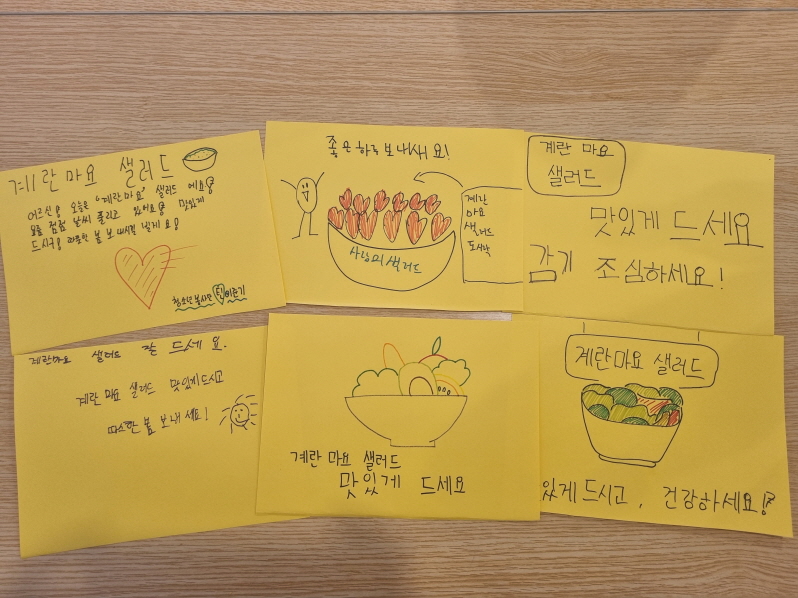 계란 마요 샐러드
어르신! 오늘은 "계란마요" 샐러드 에요!
요즘 점점 날씨 풀리고 있어요! 맛있게
드시구! 따뜻한 봄 보내시길 바래요!
청소년봉사단
좋은 하루 보내새요!
계란
마요
샐러드
도시락
사랑의 샐러드
계란 마요
샐러드
맛있게 드세요
감기 조심하세요!
계란마요 샐러드 잘 드세요.
계란 마요 샐러드 맛있게드시고
따스한 봄 보내세요!
계란 마요 샐러드
맛있게 드세요
계란마요 샐러드
있게 드시고, 건강하세요!